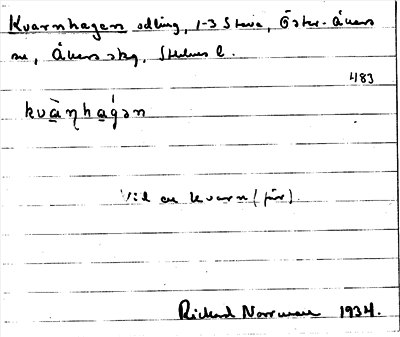 Kvarnhagen odling, 1-3 Stuva, Öster-Åkers
sn, Åkers skg, Sthlms l.
483
kvàṇhágən
Vid en kvarn (förr).
Richard Norrman 1934.